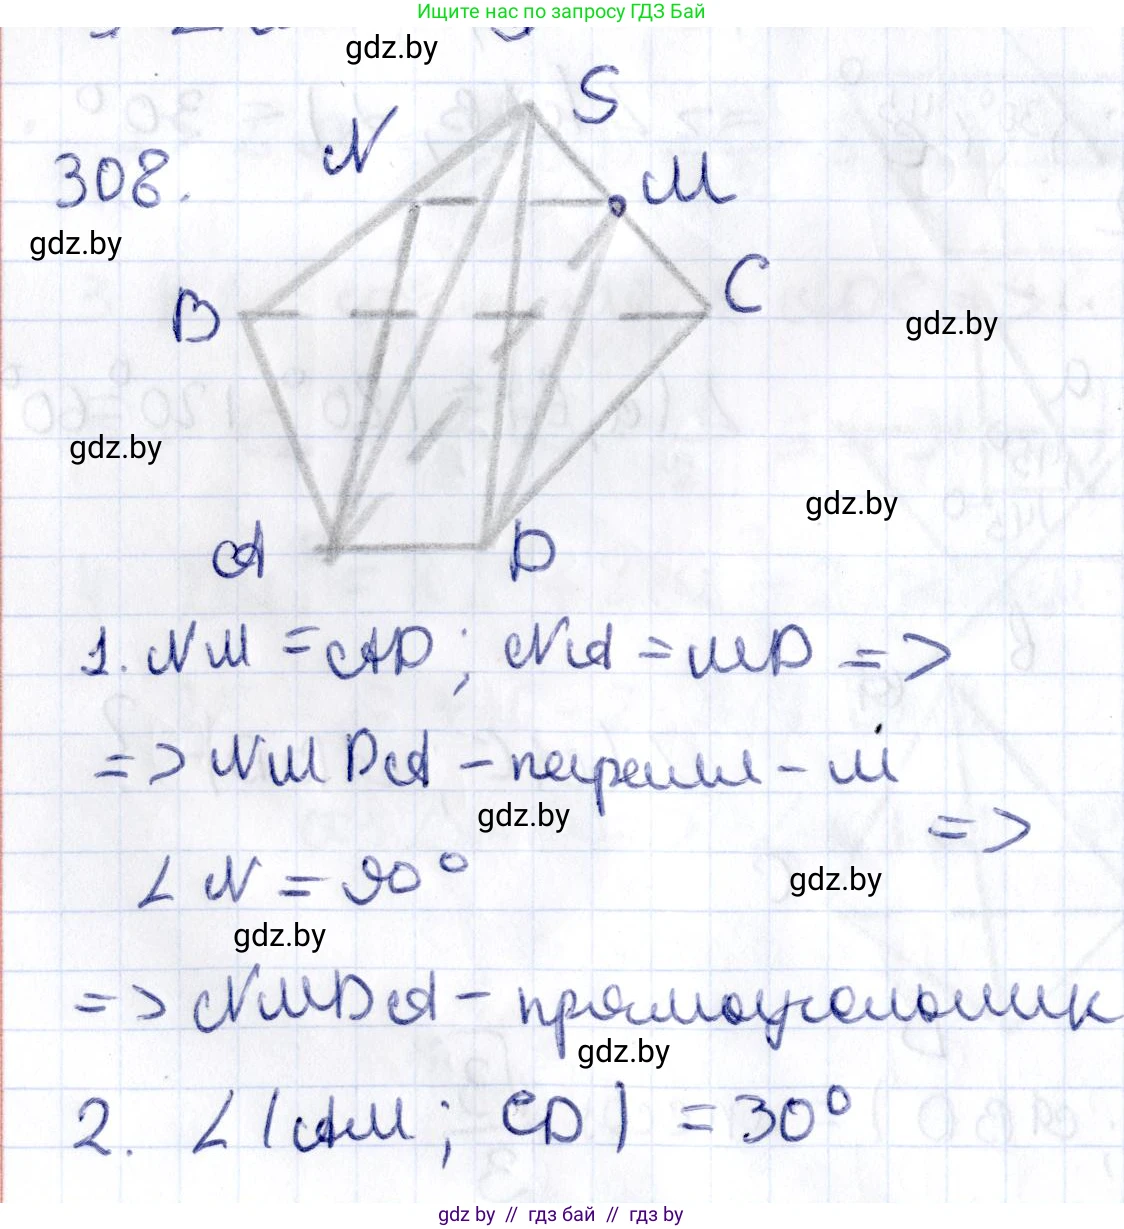 Ищите нас по запросу ГДЗ Бай
gdz.by
S
N
308.
M
gdz.by
C
B
gdz.by
gdz.by
gdz.by
A
D
1. NM = AD; NA = MD =>
=> NMDA - паралл-м
gdz.by
=>
∠N = 90°
gdz.by
gdz.by
=> NMDA - прямоугольник
gdz.by
2. ∠(AM; CD) = 30°
gdz.by // гдз бай // гдз by